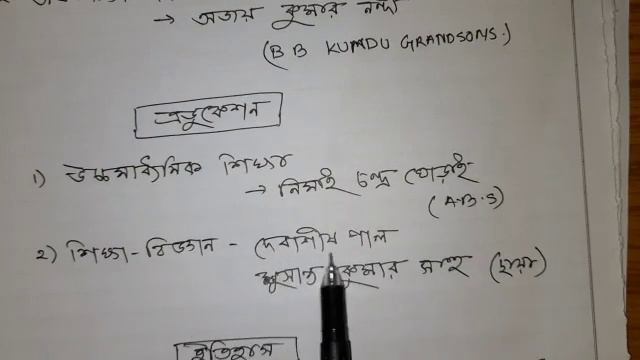 → অজয় কুমার নন্দী
(B B KUMDU GRANDSONS.)
এডুকেশন
১) উচ্চমাধ্যমিক শিক্ষা
→ নিমাই চন্দ্র ঘোড়াই
(A.B.S)
২) শিক্ষা-বিজ্ঞান - দেবাশীষ পাল
সুসান্ত কুমার সাহু (ছায়া)
ইতিহাস